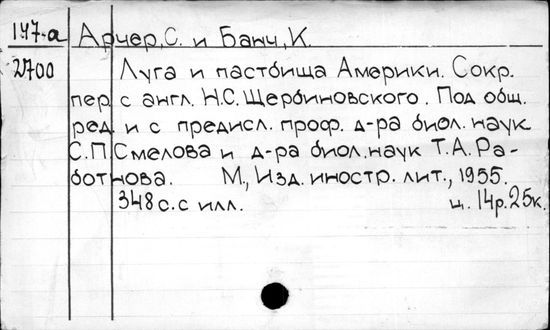 147-а Арчер, С. и Банч, К.
2700 Луга и пастбища Америки. Сокр.
пер. с англ. Н.С. Щербиновского. Под общ.
ред. и с предисл. проф. д-ра биол. наук
С.П. Смелова и д-ра биол. наук Т.А. Ра-
ботнова. М., Изд. иностр. лит., 1955.
348 с. с илл. ц. 14р. 25к.